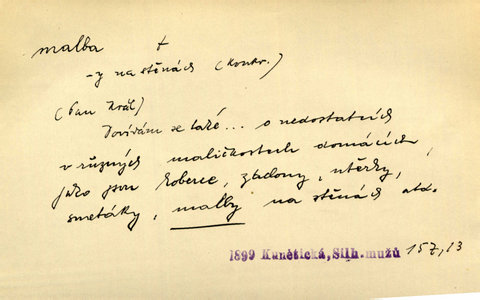 malba +
-y na stěnách (konkr.)
(Pan Král)
Dovídám se také... o nedostatcích
v různých maličkostech domácích,
jako jsou koberce, záclony, utěrky,
smetáky, malby na stěnách atd.
1899 Kunětická, Silh. mužů 157,13